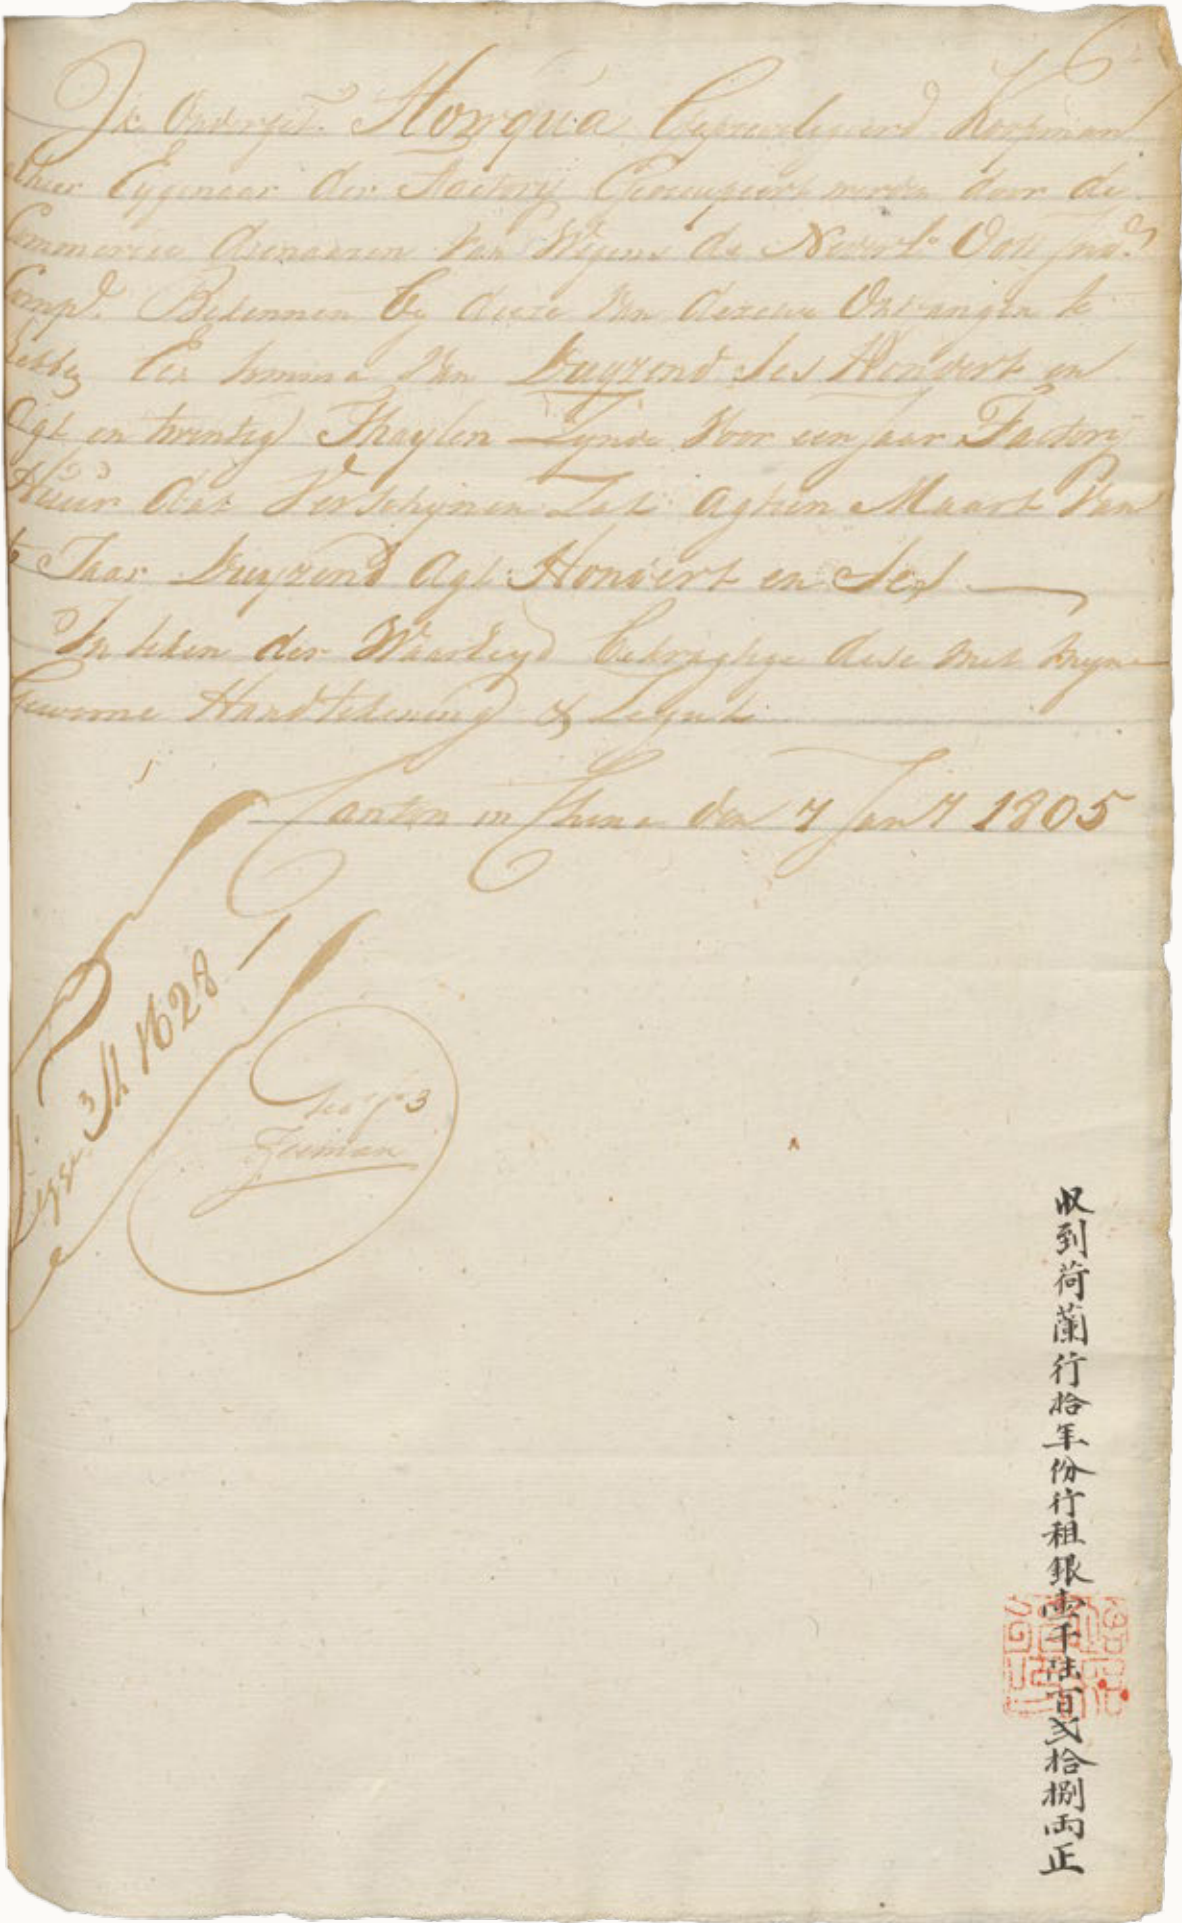 6
Ik Onderget. Howqua Gepreveligeerd Koopman
alhier Eygenaar der Factory Geoccupeert werden door de
Commercie dienaaren van Wegens de Nederl. Oost Ind.
Comp. Bekennen by deese van deselve Ontvangen te
hebben Een Somma van Duyzend Ses Hondert en
Agt en twentig Thaylen Zynde Voor een Jaar Factory
Huur dat Verschynen Zal Agtien Maart Van
t Jaar Duyzend Agt Hondert en Ses
In teken der Waarheyd bekragtige deese met myne
Gewoone Handtekening & Segult
Canton in China den 7 Jan 1805
Zegge 1628
收到荷蘭行拾年份行租銀壹千陸百弍拾捌両正